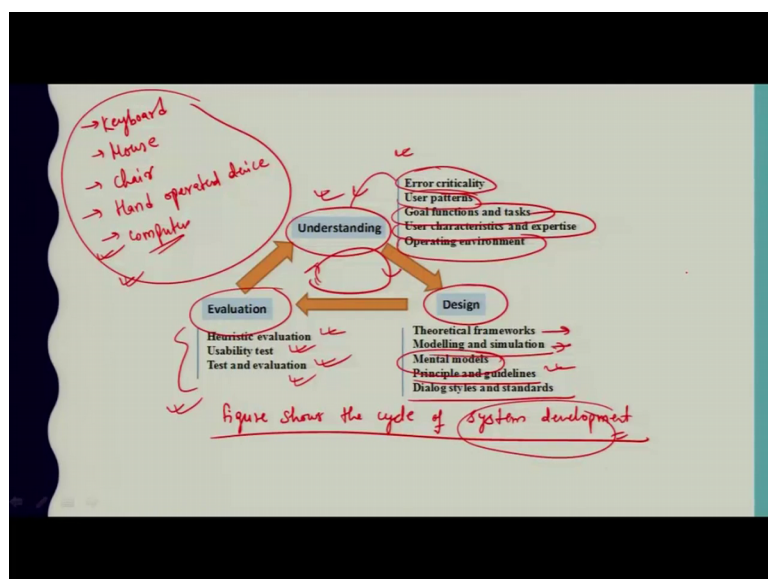 → Keyboard
→ Mouse
→ Chair
→ Hand operated device
→ Computer
Error criticality
User patterns
Goal functions and tasks
User characteristics and expertise
Operating environment
Understanding
Evaluation
Heuristic evaluation
Usability test
Test and evaluation
Design
Theoretical frameworks
Modelling and simulation
Mental models
Principle and guidelines
Dialog styles and standards
Figure shows the cycle of system development